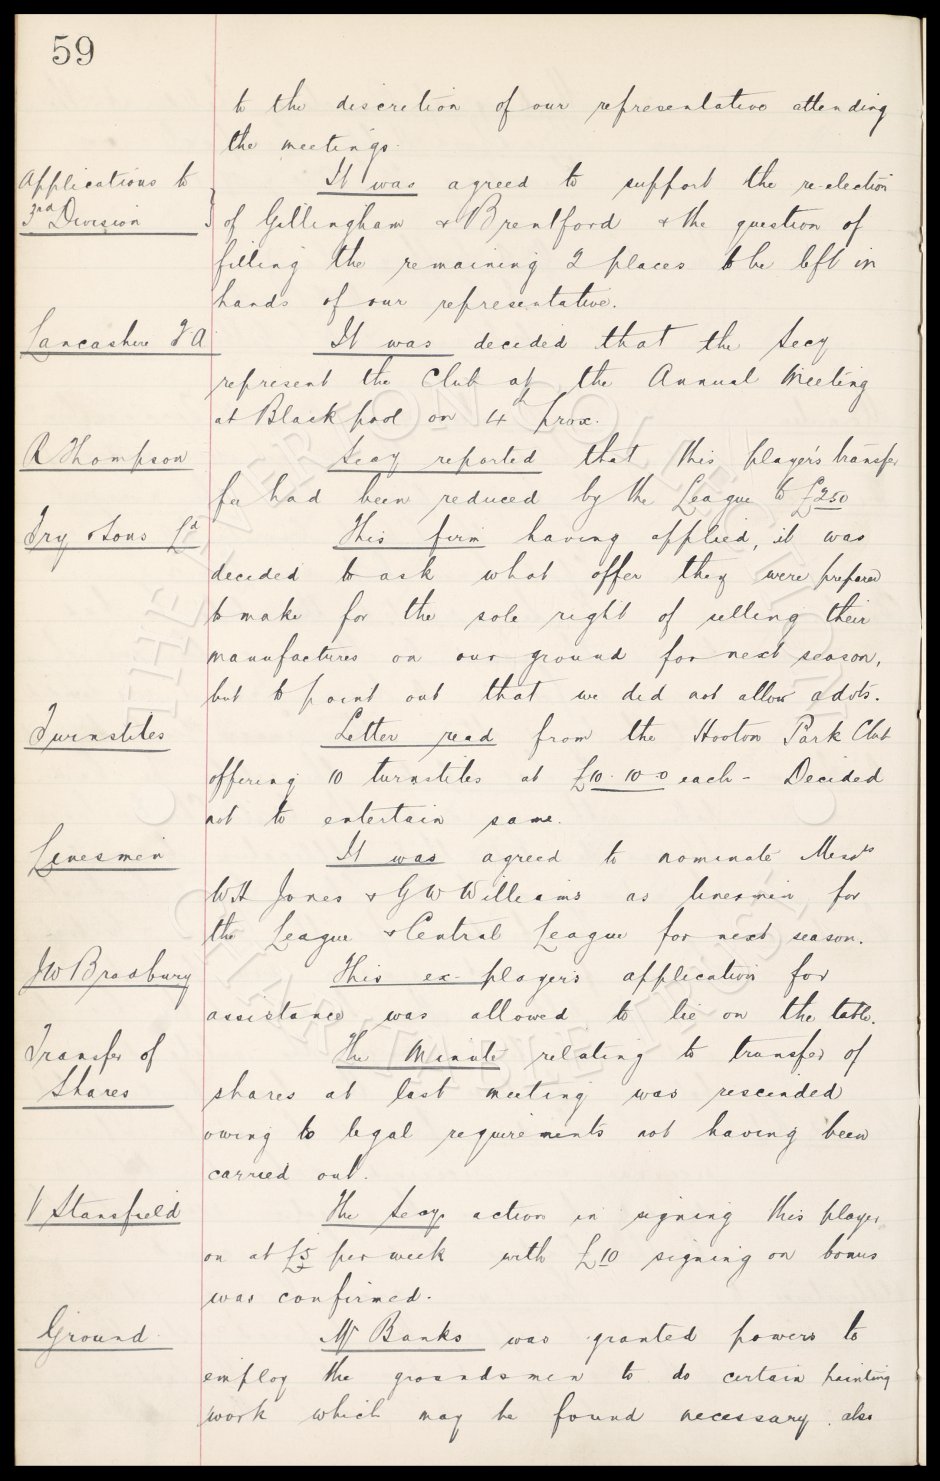 59
to the discretion of our representative attending
the meetings.
Applications to
3rd Division
It was agreed to support the re-election
of Gillingham & Brentford & the question of
filling the remaining 2 places to be left in
hands of our representative.
Lancashire F A
It was decided that the Secy
represent the Club at the Annual Meeting
at Blackpool on 4th prox.
R Thompson
Secy reported that this player's transfer
fee had been reduced by the League to £250
Fry & Sons Ld
This firm having applied, it was
decided to ask what offer they were prepared
to make for the sole right of selling their
manufactures on our ground for next season,
but to point out that we did not allow advts.
Turnstiles
Letter read from the Hooton Park Club
offering 10 turnstiles at £10.10.0 each - Decided
not to entertain same.
Linesmen
It was agreed to nominate Messrs
WH Jones & GW Williams as linesmen for
the League & Central League for next season.
JW Brasbury
This ex-player's application for
assistance was allowed to lie on the table.
Transfer of
Shares
The Minute relating to transfer of
shares at last meeting was rescinded
owing to legal requirements not having been
carried out.
V Stansfield
The Secys action in signing this player
on at £5 per week with £10 signing on bonus
was confirmed.
Ground
Mr Banks was granted powers to
employ the groundsmen to do certain painting
work which may be found necessary also
THE EVERTON COLLECTION
CHARITABLE TRUST